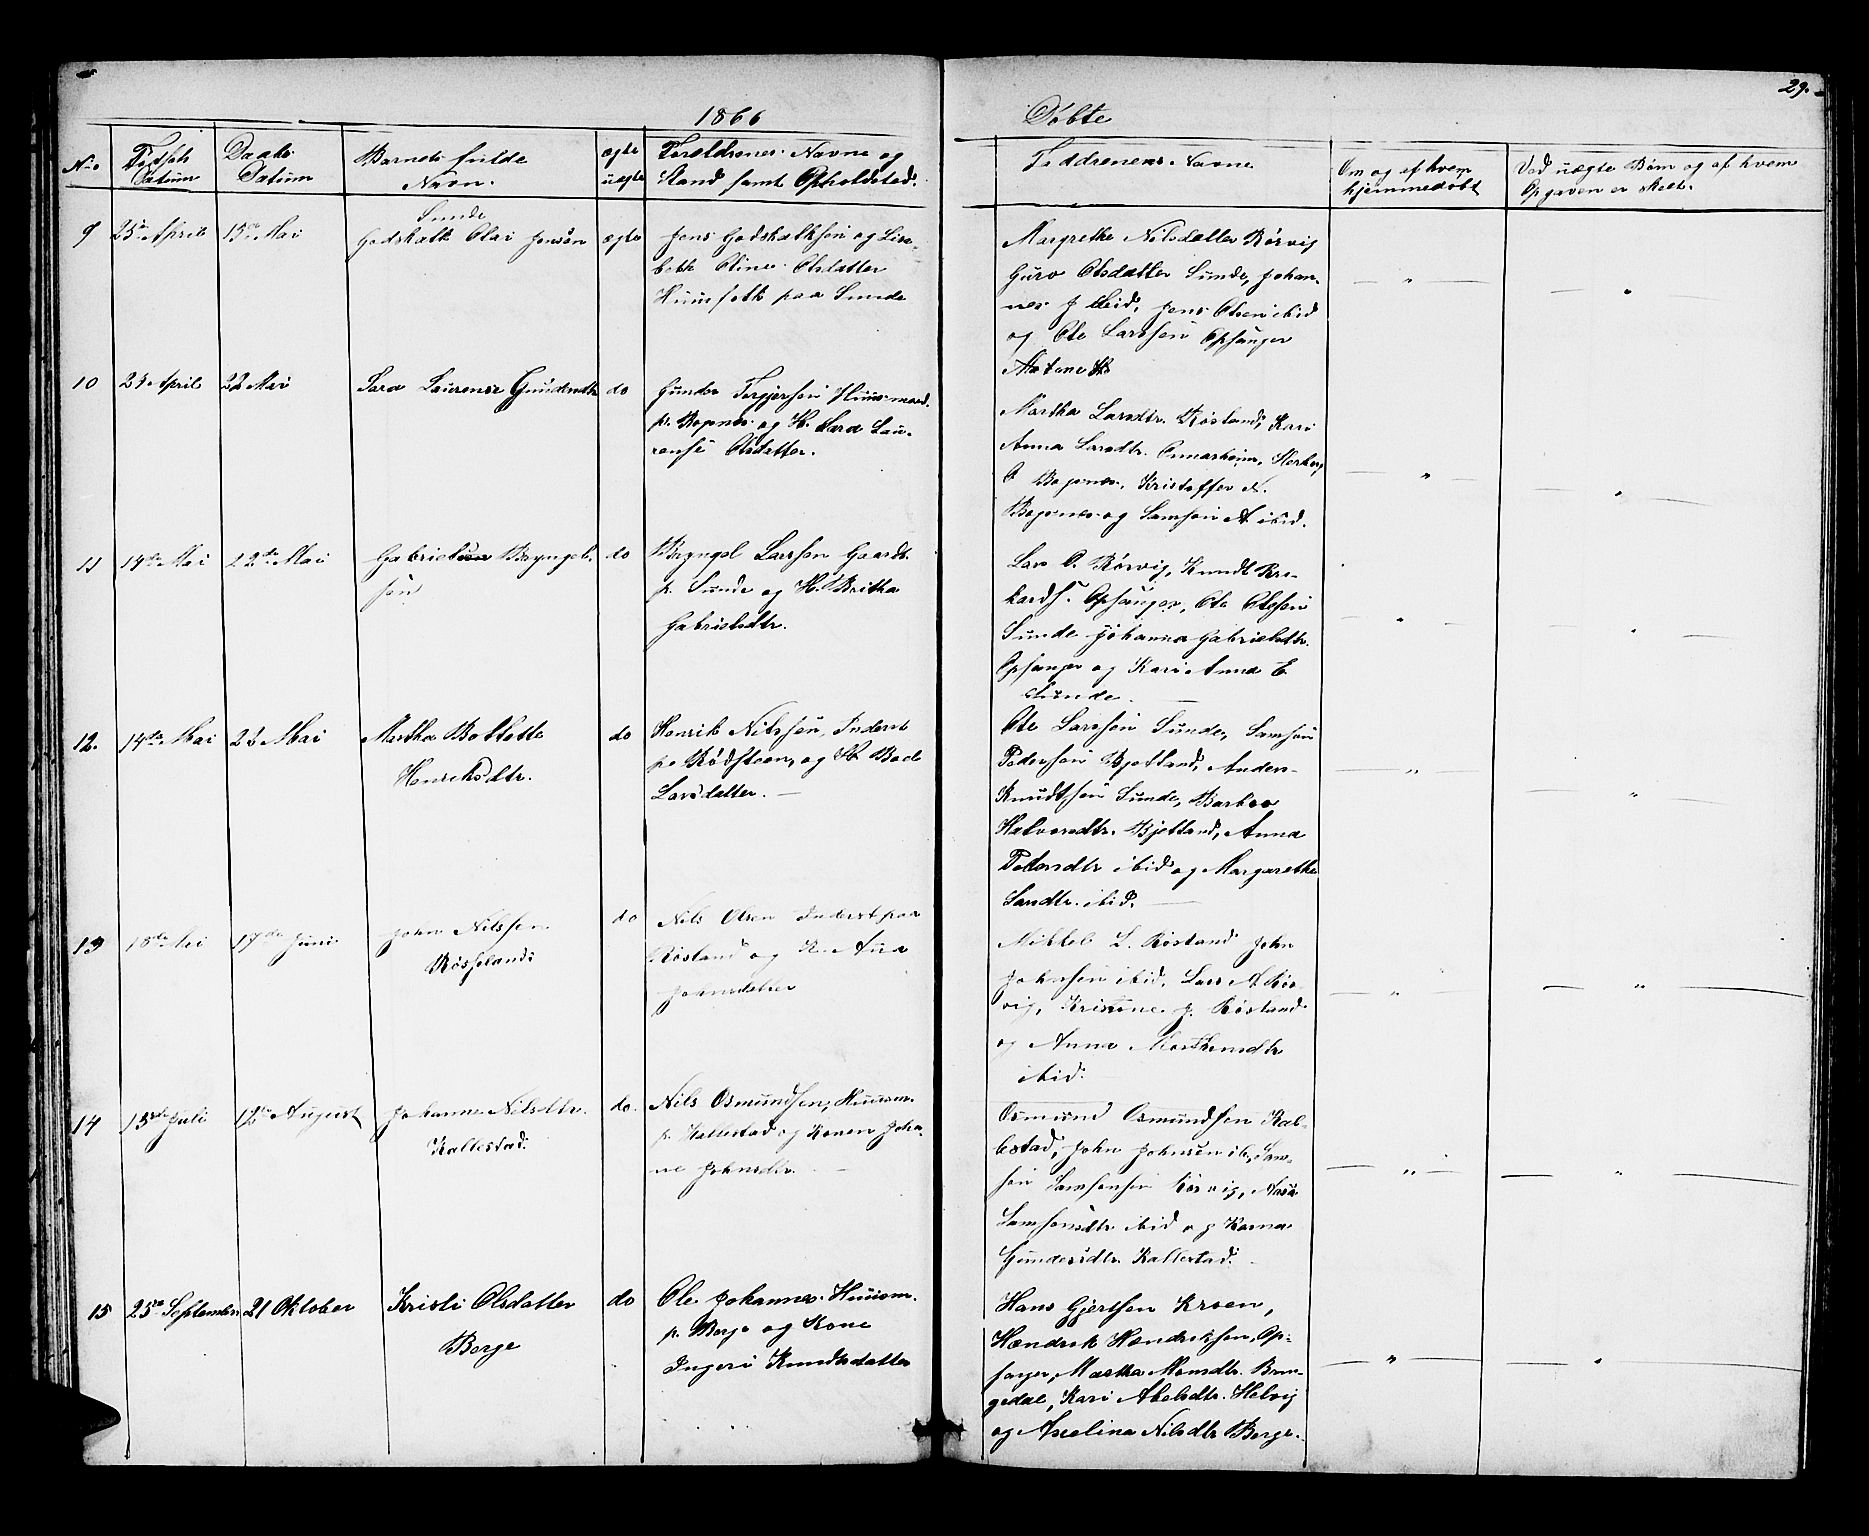 29.
1866
Døbte
No
Fødsels Datum
Daabs Datum
Barnets fulde Navn.
ægte uægte
Forældrenes Navne og Stand samt Opholdsted.
Faddrenes Navne
Om og af hvem hjemmedøbt
Ved uægte Børn og af hvem Opgaven er skeet.
9 25de April 15de Mai
Sunde
Godskalk Olai Jensen ægte
Jens Godskalksen og Lisa-
beth Oline Olsdatter
Huusfolk paa Sunde
Margrethe Nilsdatter Rørvig
Guro Olsdatter Sunde, Johan-
nes J ibid, Jens Olsen ibid
og Ole Larssen Opsanger
10 23 April 22 Mai
Sara Laurense Gundersdtr do
Gunder Torgjersen Huusmand
p. Bogsnes og K. Sara Lau-
rense Olsdatter.
Martha Larsdtr. Røsland, Kari
Anna Larsdtr. Onnarheim,
O Bogsnes, Kristoffer N.
Bogsnes og Samson A ibid.
11 14de Mai 22de Mai
Gabriel Bryngels- do
sen
Bryngel Larssen Gaardb.
p. Sunde og K. Britha
Gabrielsdtr.
Lars O. Rørvig, Knudt Ri-
kards. Opsanger, Ole Olessen
Sunde Johanna Gabrielsdtr.
Opsanger og Kari Anna E.
Sunde.
12. 14de Mai 22 Mai
Martha Bollette do
Henriksdtr.
Henrik Nilssen, Inderst
p. Rødsteen, og K. Bole
Larsdatter.
Ole Larssen Sunde, Samson
Pedersen Bjelland, Anders
Knudtsen Sunde, Barbro
Halvorsdtr. Bjelland, Anna
Pedersdtr ibid og Margrethe
Larsdtr. ibid.
13 18de Mai 17de Juni
John Nilssen do
Røsseland
Nils Olsen Inderst paa
Røsland og K. Anna
Johnsdatter
Mikkel L. Røsland John
Johnsen ibid, Lars A Rør-
vig, Kristine J. Røsland
og Anna Mortensdtr
ibid.
14 15de Juli 12te August
Johanne Nilsdtr. do.
Kallestad.
Nils Osmundsen, Huusm.
p. Kallestad og Konen Joha-
ne Johnsdtr.
Osmund Osmundsen Kal-
lestad, John Johnsen ib, Sam-
son Samsonsen Rørvig, Anna
Samsonsdtr ibid og Karna
Gundersdtr. Kallestad.
15 25de September 21 Oktober
Kristi Olsdatter do
Berge
Ole Johannes. Huusm.
p. Berge og Kone
Ingeri Knudtsdatter
Hans Gjertsen Kroen,
Hændrik Hændriksen Op-
sanger, Martha Monsdtr. Bon-
gedal, Kari Abelsdtr. Helvig
og Aselina Nilsdtr Berge.